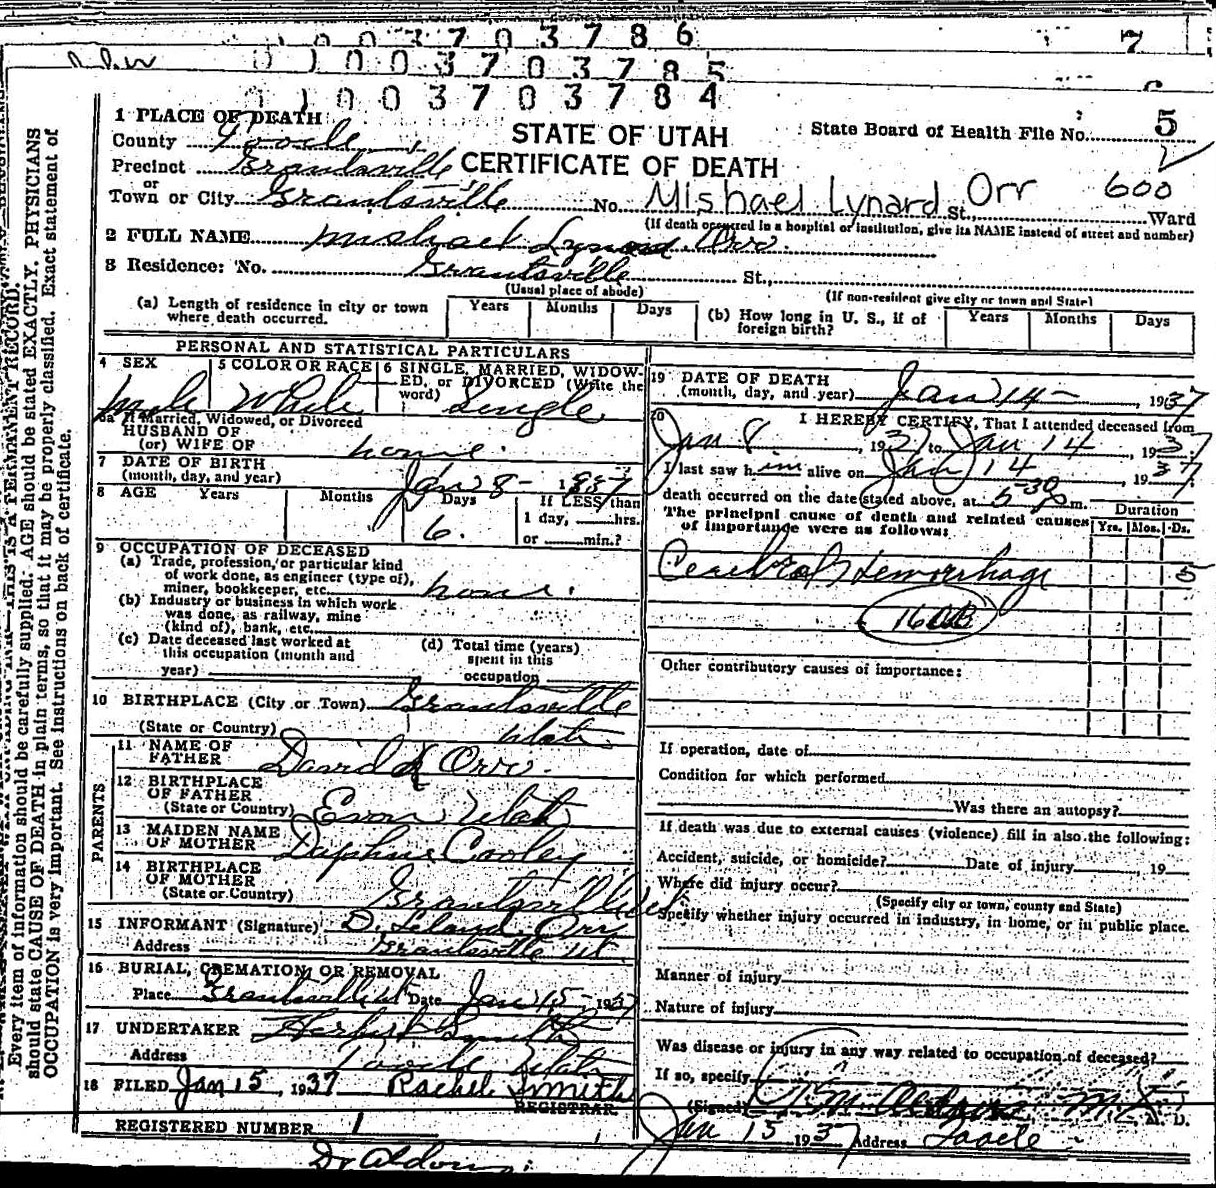 0 1 0 0 3 7 0 3 7 8 6 7
0 1 0 0 3 7 0 3 7 8 5 6
0 1 0 0 3 7 0 3 7 8 4 5
STATE OF UTAH
CERTIFICATE OF DEATH
State Board of Health File No.
1 PLACE OF DEATH
County Tooele
Precinct Grantsville
or
Town or City Grantsville No. Mishael Lynard Orr St., 600 Ward
(If death occurred in a hospital or institution, give its NAME instead of street and number)
2 FULL NAME Mishael Lynard Orr.
3 Residence: No. Grantsville St.,
(Usual place of abode) (If non-resident give city or town and State)
(a) Length of residence in city or town where death occurred. Years Months Days
(b) How long in U. S., if of foreign birth? Years Months Days
PERSONAL AND STATISTICAL PARTICULARS
4 SEX male
5 COLOR OR RACE White
6 SINGLE, MARRIED, WIDOWED, or DIVORCED (Write the word) Single
6a If Married, Widowed, or Divorced
HUSBAND OF
(or) WIFE OF none.
7 DATE OF BIRTH
(month, day, and year) Jan 8 - 1937
8 AGE Years Months Days 6.
If LESS than
1 day, hrs.
or min.?
9 OCCUPATION OF DECEASED
(a) Trade, profession, or particular kind
of work done, as engineer (type of),
miner, bookkeeper, etc. none.
(b) Industry or business in which work
was done, as railway, mine
(kind of), bank, etc.
(c) Date deceased last worked at
this occupation (month and
year)
(d) Total time (years)
spent in this
occupation
10 BIRTHPLACE (City or Town) Grantsville
(State or Country) Utah
PARENTS
11 NAME OF
FATHER David L Orr.
12 BIRTHPLACE
OF FATHER
(State or Country) Utah
13 MAIDEN NAME
OF MOTHER Daphne Cooley
14 BIRTHPLACE
OF MOTHER
(State or Country) Grantsville Ut
15 INFORMANT (Signature) D. Leland Orr
Address Grantsville Ut.
16 BURIAL, CREMATION OR REMOVAL
Place Grantsville Ut Date Jan 15 - 1937
17 UNDERTAKER Herbert Smith
Address Tooele Utah
18 FILED Jan 15, 1937 Rachel Smith
REGISTRAR
REGISTERED NUMBER 1
19 DATE OF DEATH
(month, day, and year) Jan 14 - , 1937
20 I HEREBY CERTIFY, That I attended deceased from
Jan 8, 1937 to Jan 14, 1937
I last saw him alive on Jan 14, 1937
death occurred on the date stated above, at 5 30 p m.
The principal cause of death and related causes
of importance were as follows:
Duration
Yrs. Mos. Ds.
Cerebral Hemorrhage 5
Other contributory causes of importance:
If operation, date of
Condition for which performed
Was there an autopsy?
If death was due to external causes (violence) fill in also the following:
Accident, suicide, or homicide? Date of injury , 19
Where did injury occur?
(Specify city or town, county and State)
Specify whether injury occurred in industry, in home, or in public place.
Manner of injury
Nature of injury
Was disease or injury in any way related to occupation of deceased?
If so, specify
(Signed) M. D.
Jan 15 1937 Address Tooele
Every item of information should be carefully supplied. AGE should be stated EXACTLY. PHYSICIANS
should state CAUSE OF DEATH in plain terms, so that it may be properly classified. Exact statement of
OCCUPATION is very important. See instructions on back of certificate.